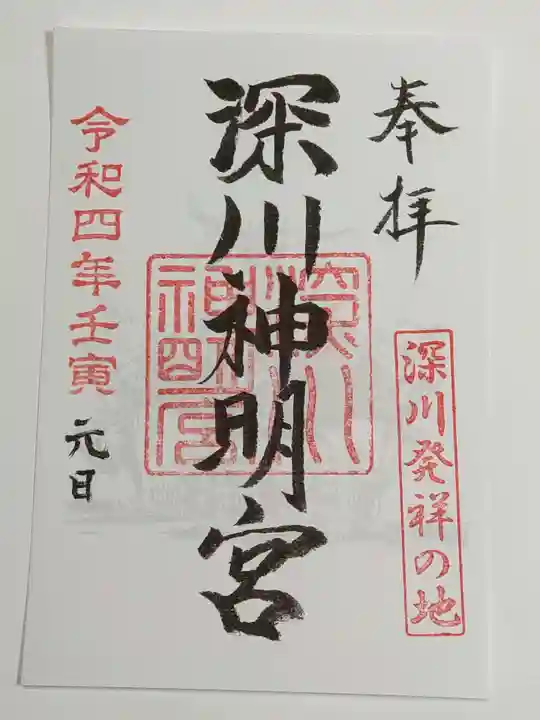 奉拝
深川発祥の地
深川神明宮
深川神明宮
令和四年壬寅
元日